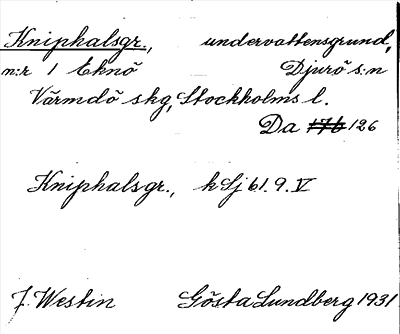 Kniphalsgr., undervattensgrund,
n:r 1 Eknö Djurö s:n
Värmdö skg, Stockholms l.
Da 176 126
Kniphalsgr., k Sj 61. 9. V
J. Westin Gösta Lundberg 1931